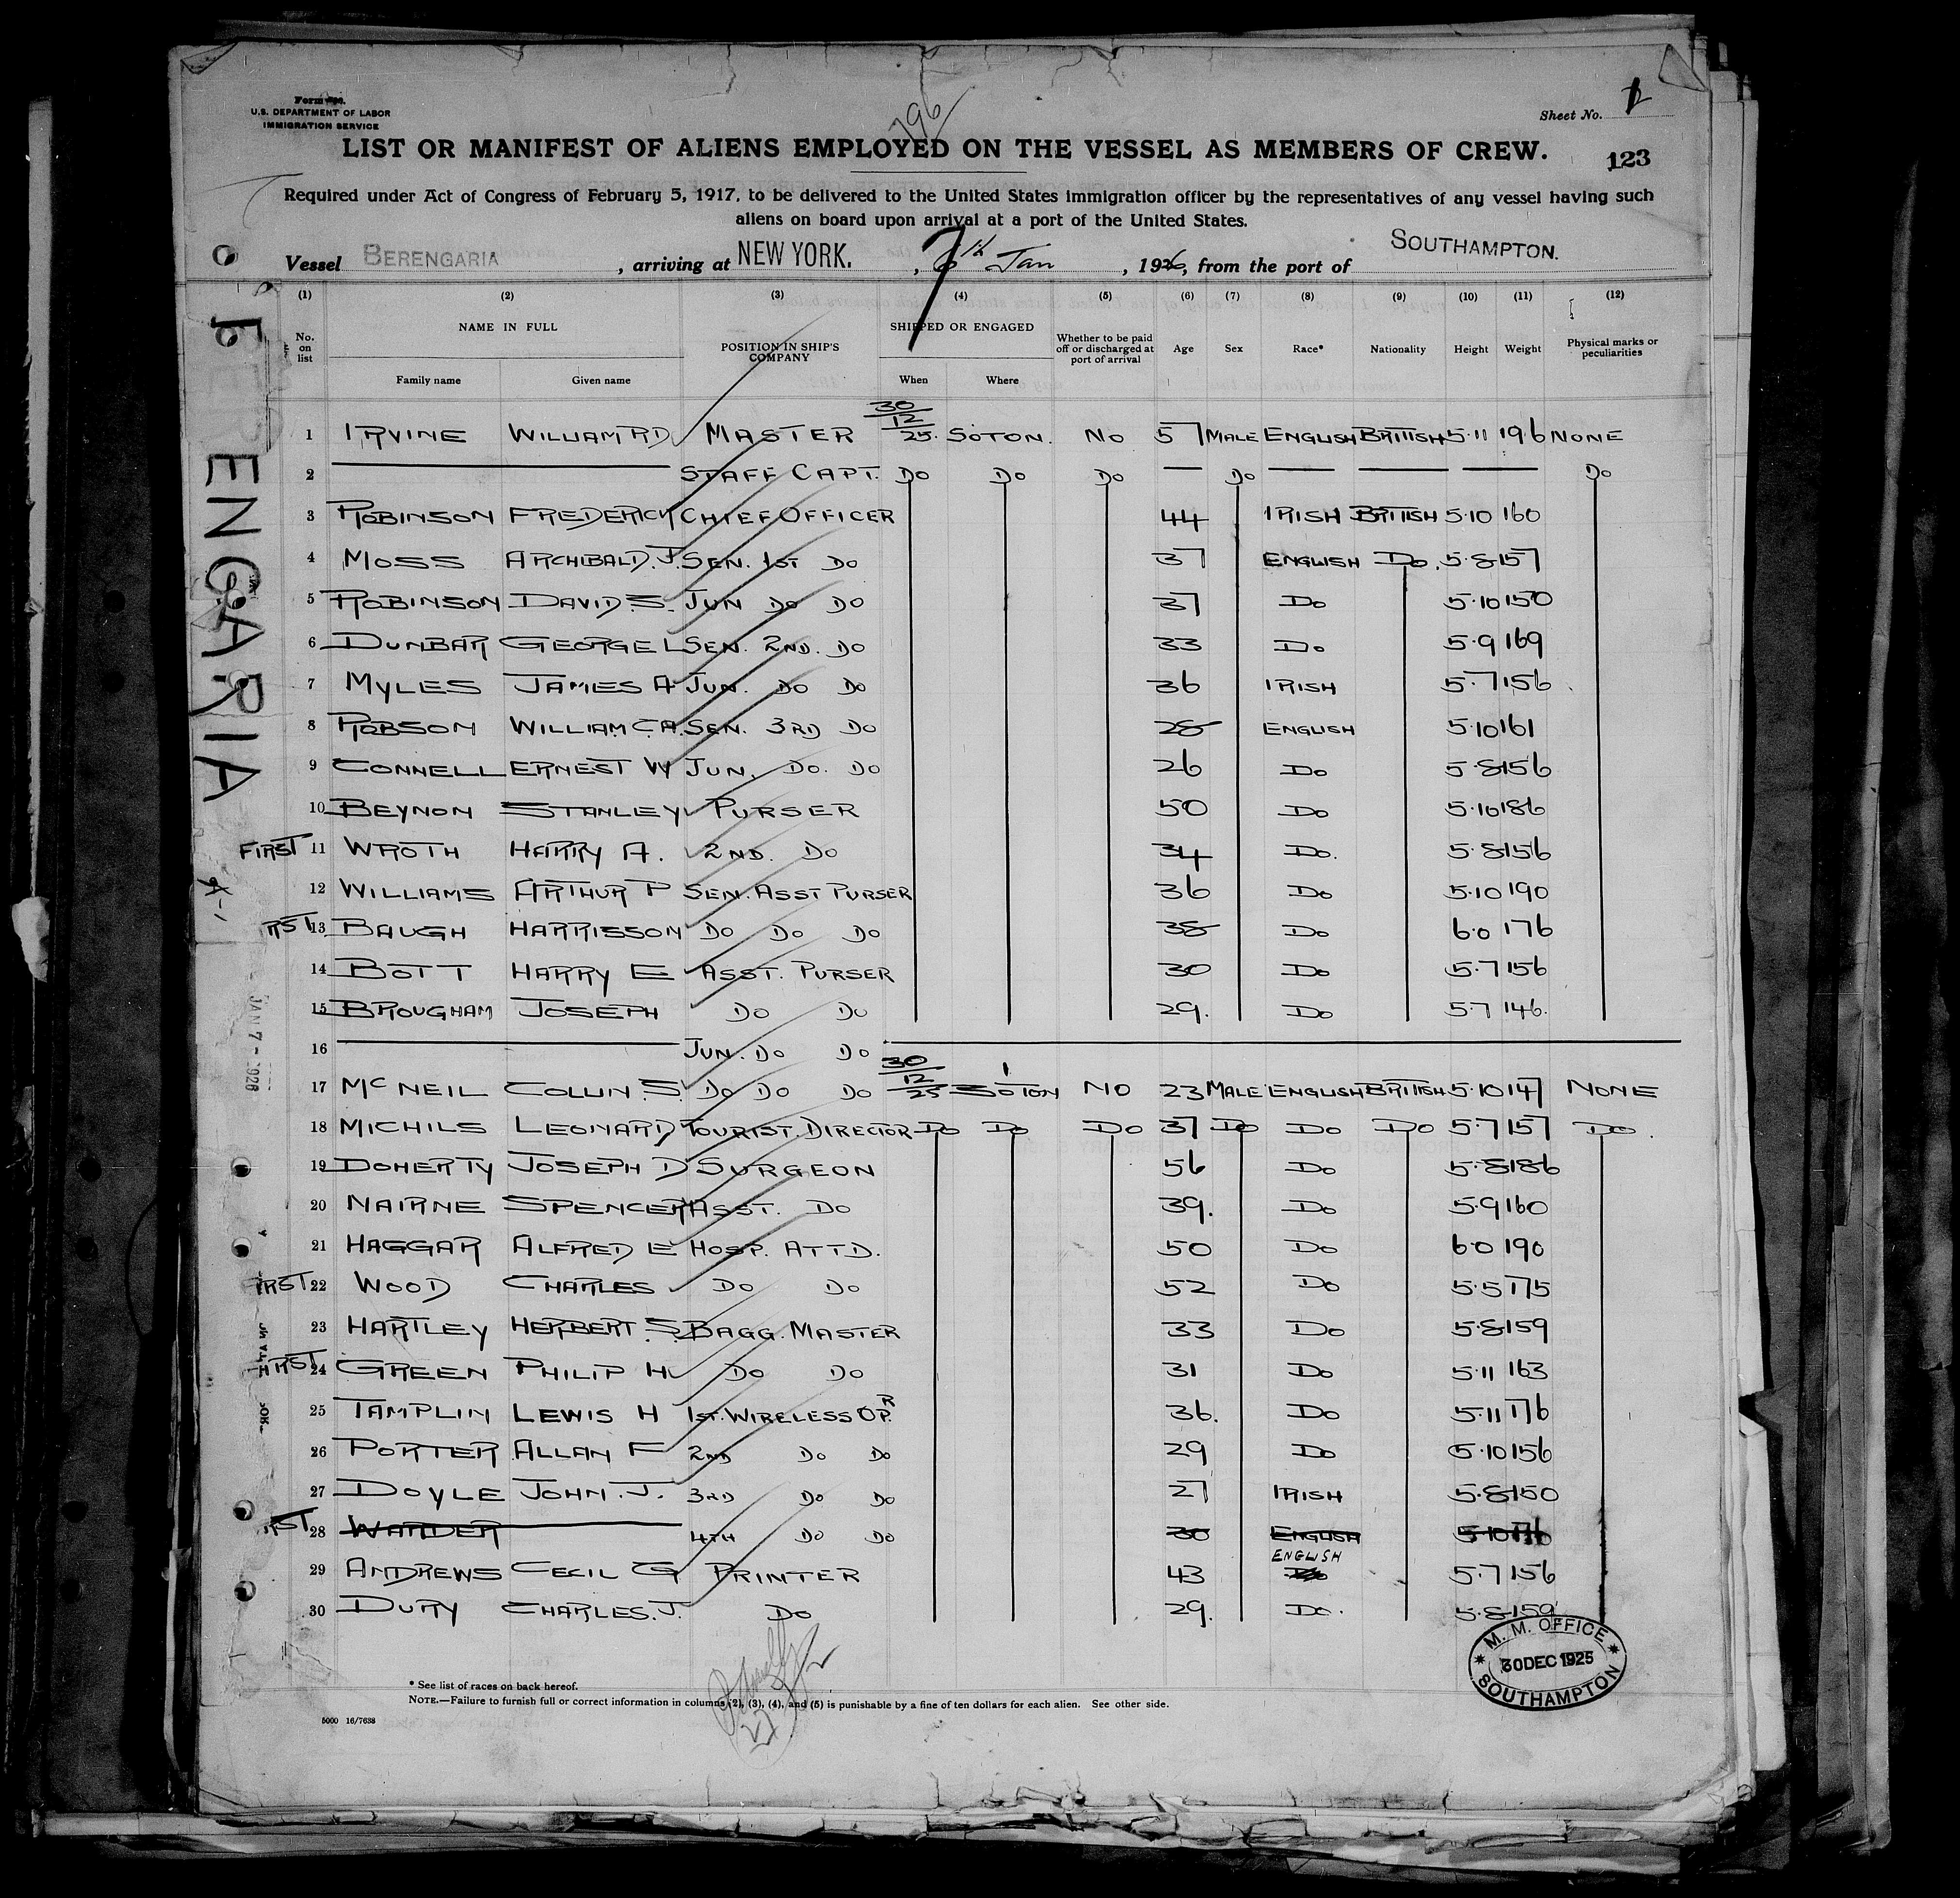 Form
U.S. DEPARTMENT OF LABOR
IMMIGRATION SERVICE
796
Sheet No.
LIST OR MANIFEST OF ALIENS EMPLOYED ON THE VESSEL AS MEMBERS OF CREW.
123
Required under Act of Congress of February 5, 1917, to be delivered to the United States immigration officer by the representatives of any vessel having such
aliens on board upon arrival at a port of the United States.
Vessel BERENGARIA, arriving at NEW YORK., 7th Jan, 1926, from the port of SOUTHAMPTON.
(1) (2) (3) (4) (5) (6) (7) (8) (9) (10) (11) (12)
No. on list NAME IN FULL POSITION IN SHIP'S COMPANY SHIPPED OR ENGAGED Whether to be paid off or discharged at port of arrival Age Sex Race* Nationality Height Weight Physical marks or peculiarities
Family name Given name When Where
BERENGARIA
1 IRVINE WILLIAM R.D. MASTER 30/12/25. SOTON. NO 57 MALE ENGLISH BRITISH 5·11 196 NONE
2 STAFF CAPT. DO DO DO — DO — — — DO
3 ROBINSON FREDERICK CHIEF OFFICER 44 IRISH BRITISH 5·10 160
4 MOSS ARCHIBALD. J. SEN. 1ST DO 37 ENGLISH DO. 5·8 157
5 ROBINSON DAVID. S. JUN DO DO 37 DO 5·10 150
6 DUNBAR GEORGE L SEN. 2ND. DO 33 DO 5·9 169
7 MYLES JAMES A JUN. DO DO 36 IRISH 5·7 156
8 ROBSON WILLIAM C.A. SEN. 3RD DO 28 ENGLISH 5·10 161
9 CONNELL ERNEST W JUN. DO. DO 26 DO 5·8 156
10 BEYNON STANLEY PURSER 50 DO 5·10 186
FIRST 11 WROTH HARRY A. 2ND. DO 34 DO. 5·8 156
12 WILLIAMS ARTHUR P SEN. ASST PURSER 36 DO 5·10 190
RST 13 BAUGH HARRISSON DO DO DO 38 DO 6·0 176
14 BOTT HARRY E ASST. PURSER 30 DO 5·7 156
15 BROUGHAM JOSEPH DO DO 29. DO 5·7 146.
JAN 7 - 1926
16 JUN. DO DO
17 McNEIL COLLIN S. DO DO DO 30/12/25 SOTON NO 23 MALE ENGLISH BRITISH 5·10 147 NONE
18 MICHILS LEONARD TOURIST. DIRECTOR DO DO DO 37 DO DO DO 5·7 157 DO.
19 DOHERTY JOSEPH D SURGEON 56 DO 5·8 186
20 NAIRNE SPENCER ASST. DO 39. DO 5·9 160
21 HAGGAR ALFRED E HOSP. ATTD. 50 DO 6·0 190
IRST 22 WOOD CHARLES DO DO 52 DO 5·5 175
23 HARTLEY HERBERT. S. BAGG. MASTER 33 DO 5·8 159
FIRST 24 GREEN PHILIP H DO DO 31 DO 5·11 163
25 TAMPLIN LEWIS H 1ST. WIRELESS OPR. 36. DO 5·11 176
26 PORTER ALLAN F 2ND DO DO 29 DO 5·10 156
27 DOYLE JOHN. J. 3RD DO DO 27 IRISH 5·8 150
RST 28 WARDER 4TH DO DO 30 ENGLISH 5·10 176
29 ANDREWS CECIL G PRINTER 43 ENGLISH 5·7 156
30 DURY CHARLES. J. DO 29. DO. 5·8 159
M. M. OFFICE
30 DEC 1925
SOUTHAMPTON
* See list of races on back hereof.
NOTE.—Failure to furnish full or correct information in columns (2), (3), (4), and (5) is punishable by a fine of ten dollars for each alien. See other side.
5000 16/7638